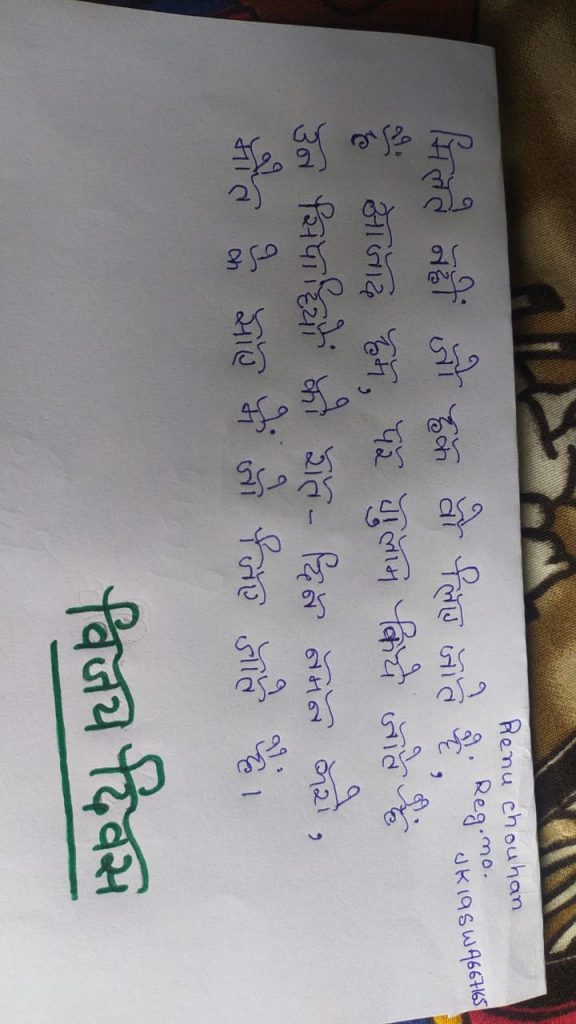 Renu chouhan
Reg. no.
UK19SWA667165
मिलते नहीं जो हक वो लिए जाते हैं,
हैं आजाद हम, पर गुलाम किये जाते हैं
उन सिपाहियों को रात-दिन नमन करो,
मौत के साए में जो जिए जाते हैं।
विजय दिवस